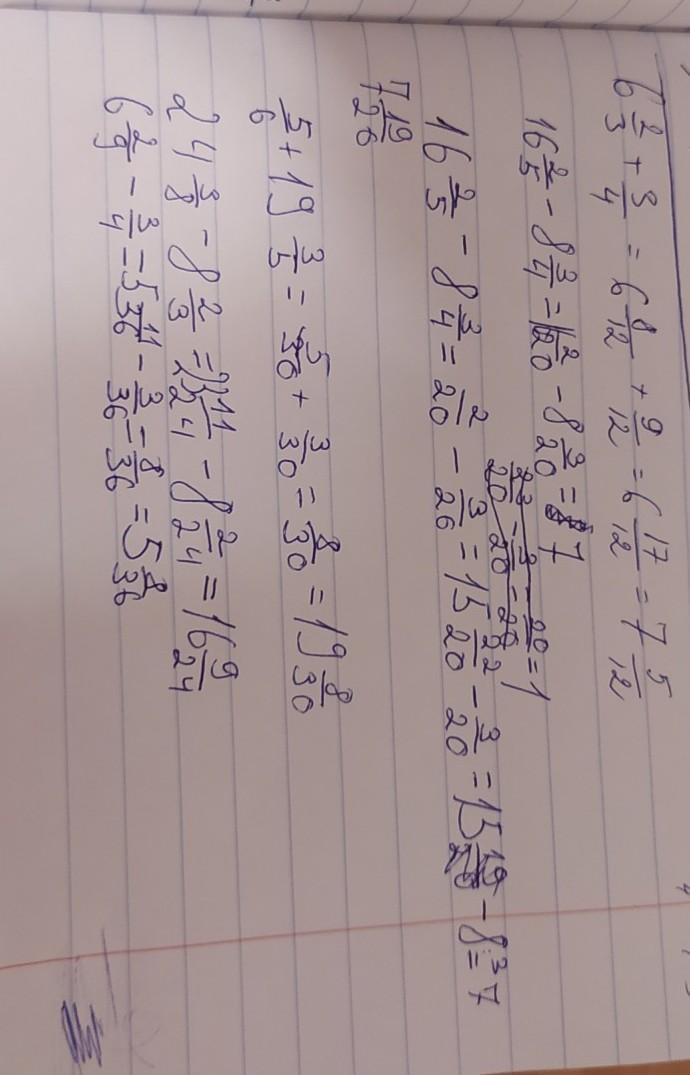 6 2/3 + 3/4 = 6 8/12 + 9/12 = 6 17/12 = 7 5/12
16 2/5 - 8 3/4 = 2/20 - 8 3/20 = 7
20/20 = 1
16 2/5 - 8 3/4 = 2/20 - 3/26 = 15 22/20 - 3/20 = 15 19/20 - 8 = 7
7 19/26
5/6 + 19 3/5 = 5/30 + 3/30 = 8/30 = 19 8/30
24 3/8 - 8 2/3 = 11/24 - 8 2/24 = 16 9/24
6 2/9 - 3/4 = 5 11/36 - 3/36 = 8/36 = 5 8/36